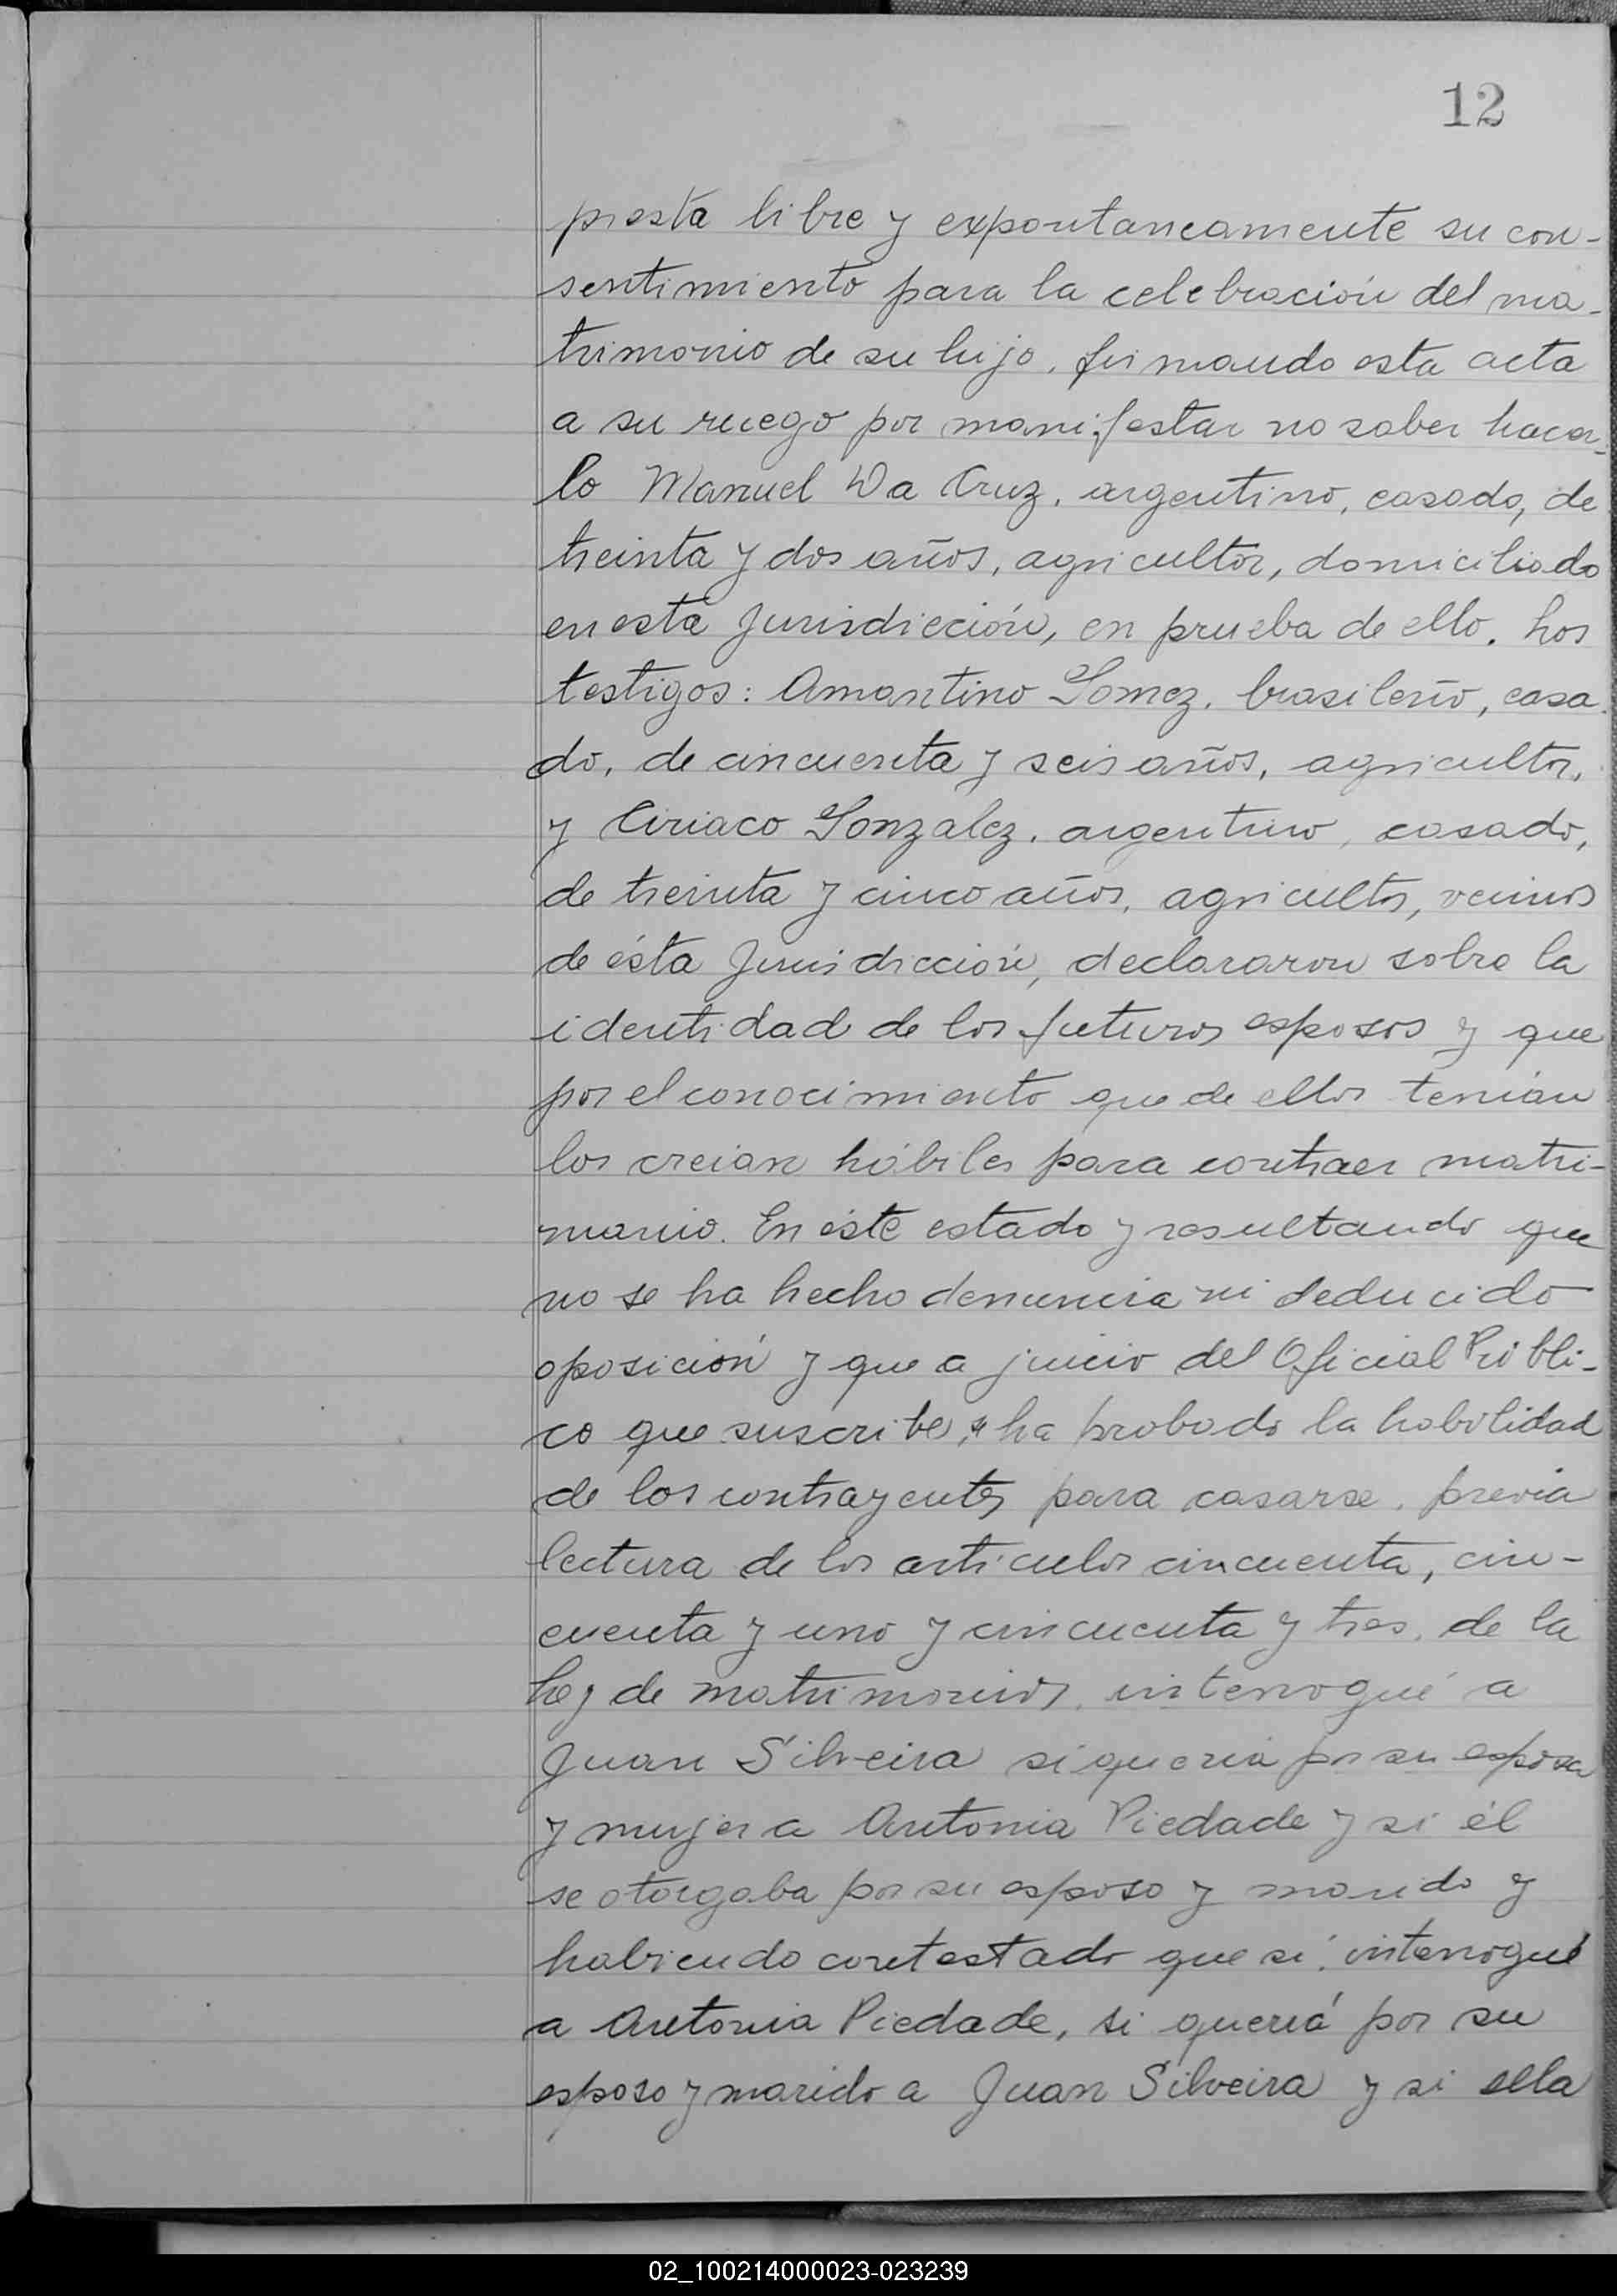 12
presta libre y expontaneamente su con-
sentimiento para la celebración del ma-
trimonio de su hijo, firmando esta acta
a su ruego por manifestar no saber hacer-
lo Manuel Da Cruz, argentino, casado, de
treinta y dos años, agricultor, domiciliado
en esta Jurisdicción, en prueba de ello. Los
testigos: Amantino Gomez, brasileño, casa-
do, de cincuenta y seis años, agricultor,
y Ciriaco Gonzalez, argentino, casado,
de treinta y cinco años, agricultor, vecinos
de ésta Jurisdicción, declararon sobre la
identidad de los futuros esposos y que
por el conocimiento que de ellos tenían
los creian hábiles para contraer matri-
monio. En éste estado y resultando que
no se ha hecho denuncia ni deducido
oposición y que a juicio del Oficial Públi-
co que suscribe, se ha probado la habilidad
de los contrayentes para casarse, previa
lectura de los articulos cincuenta, cin-
cuenta y uno y cincuenta y tres, de la
Ley de matrimonios, interrogué a
Juan Silveira si quería por su esposa
y mujer a Antonia Piedade y si él
se otorgaba por su esposo y marido y
habiendo contestado que sí, interrogué
a Antonia Piedade, si quería por su
esposo y marido a Juan Silveira y si ella
02_100214000023-023239